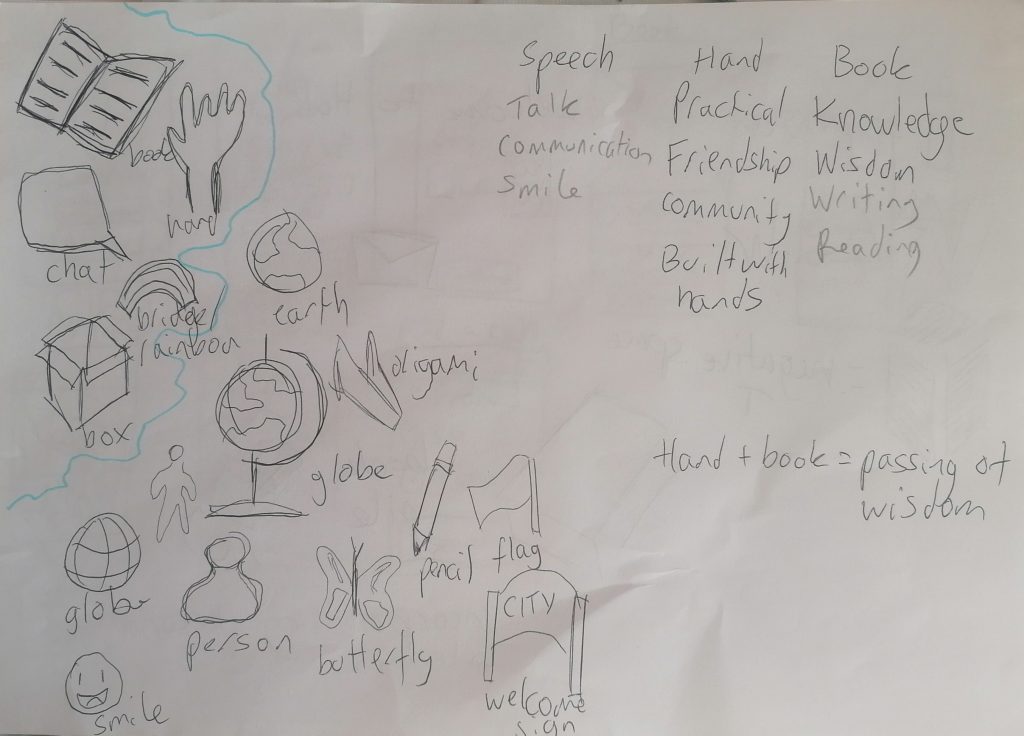 book
hand
chat
bridge/
rainbow
box
earth
origami
globe
pencil
flag
CITY
welcome
sign
globe
person
butterfly
smile
Speech
Talk
Communication
Smile
Hand
Practical
Friendship
community
Built with
hands
Book
Knowledge
Wisdom
Writing
Reading
Hand + book = passing of
wisdom